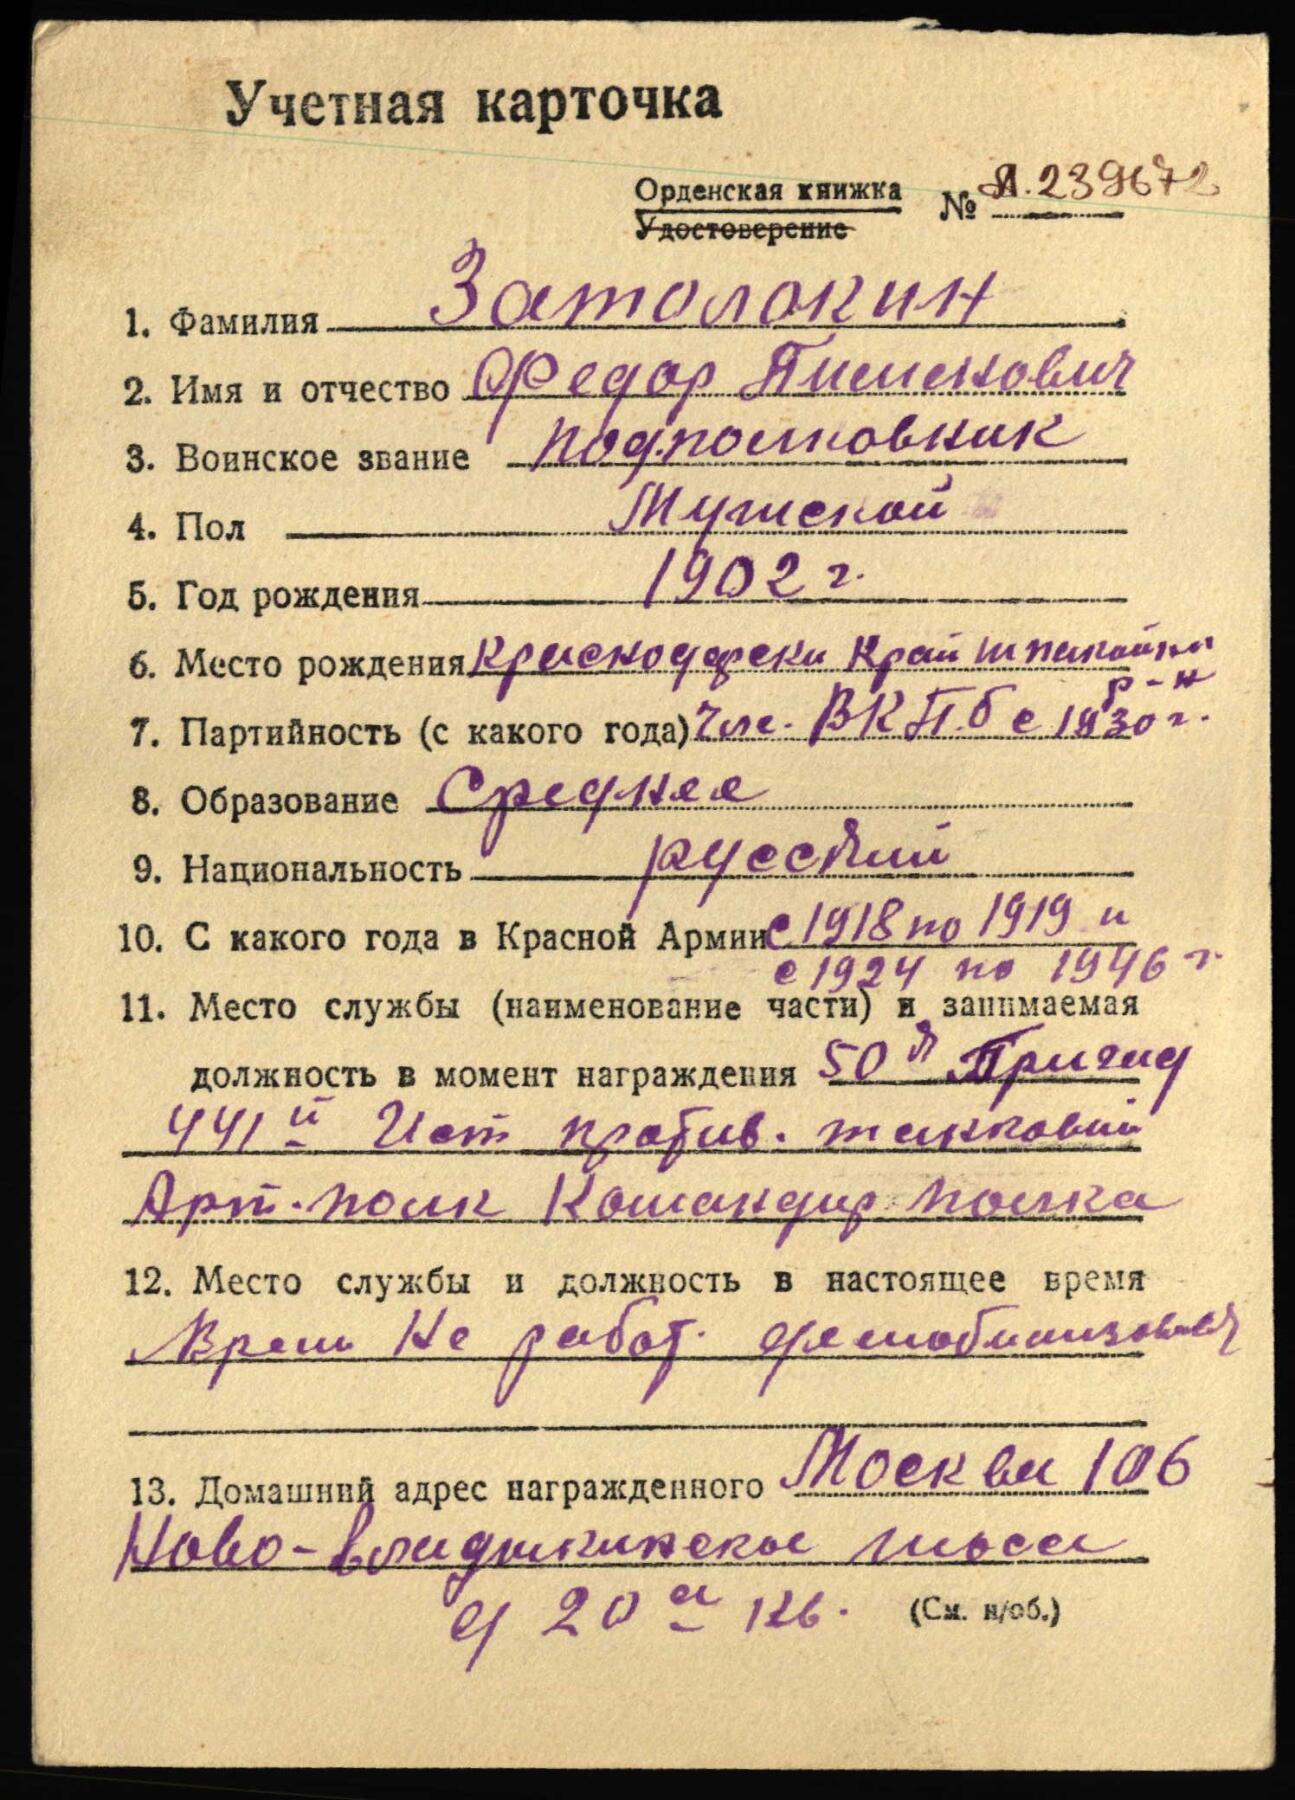 Учетная карточка
Орденская книжка № Л.239672
Удостоверение
1. Фамилия Затолокин
2. Имя и отчество Федор Пименович
3. Воинское звание подполковник
4. Пол Мужской
5. Год рождения 1902 г.
6. Место рождения Краснодарски Край
р-н
7. Партийность (с какого года) Чле. ВКП.б с 1930 г.
8. Образование Среднее
9. Национальность русский
10. С какого года в Красной Армии с 1918 по 1919 и
с 1924 по 1946 г.
11. Место службы (наименование части) и занимаемая
должность в момент награждения 50я
441й Ист против. танковый
Арт. полк Командир полка
12. Место службы и должность в настоящее время
Врем Не работ.
13. Домашний адрес награжденного Москва 106
Ново-владыкинское шосе
д 20а кв.
(См. н/об.)